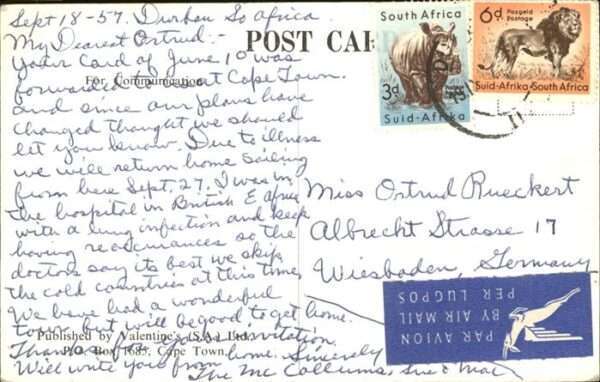 Sept 18-57. Durban So africa
My Dearest Ortrud:-
Your Card of June 10 was
forwarded to us at Cape Town.
and since our plans have
changed thought we should
let you know. Due to illness
we will return home sailing
from here Sept. 27. I was in
The hospital in British E Africa
with a lung infection and keep
having reoccurances so the
doctors say its best we skip
the cold countries at this time,
We have had a wonderful
tour but will be good to get home.
Thanks for your invitation.
Will write you from home. Sincerely
The Mc Callums, Sue & Mac
POST CARD
For Communication
Published by Valentine's (S.A.) Ltd.,
P.O. Box 1685, Cape Town.
South Africa
3d
Suid-Afrika
6d Posgeld
Postage
Suid-Afrika·South Africa
Miss Ortrud Rueckert
Albrecht Strasse 17
Wiesbaden, Germany
PAR AVION
BY AIR MAIL
PER LUGPOS